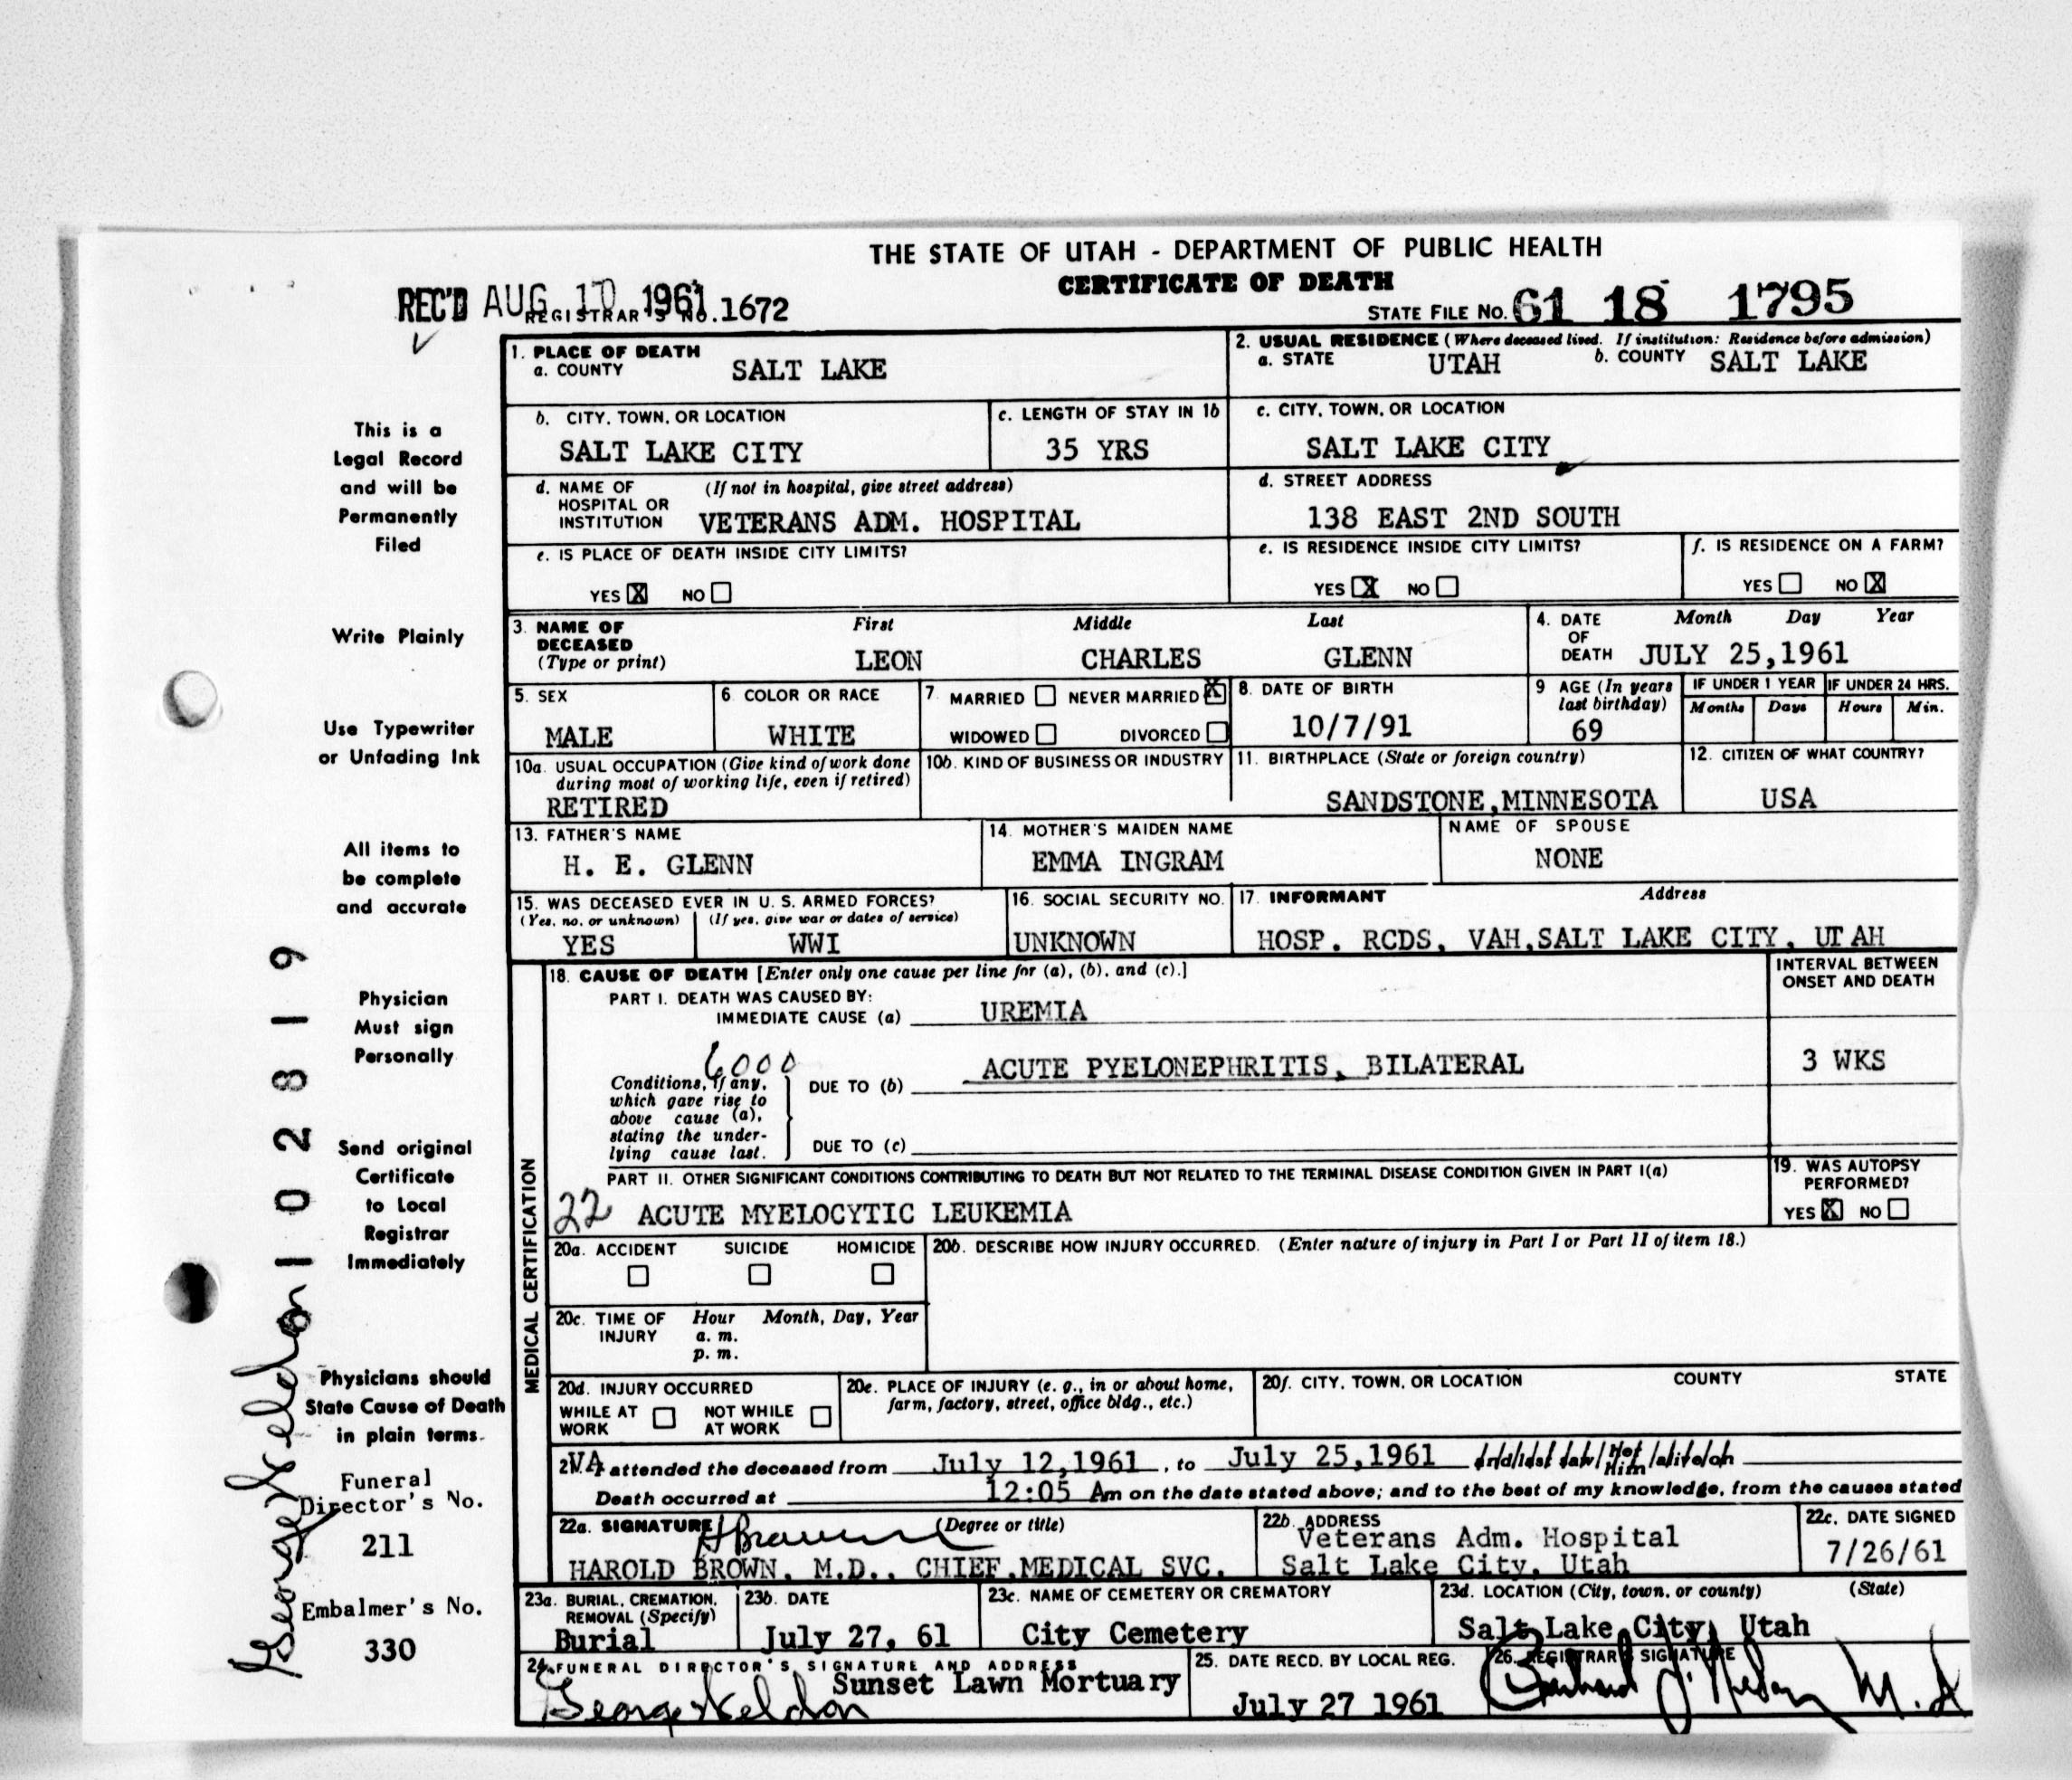 THE STATE OF UTAH - DEPARTMENT OF PUBLIC HEALTH
CERTIFICATE OF DEATH
REC'D AUG 10 1961
REGISTRAR'S NO. 1672
STATE FILE NO. 61 18 1795
This is a
Legal Record
and will be
Permanently
Filed
Write Plainly
Use Typewriter
or Unfading Ink
All items to
be complete
and accurate
Physician
Must sign
Personally
Send original
Certificate
to Local
Registrar
Immediately
Physicians should
State Cause of Death
in plain terms.
Funeral
Director's No.
211
Embalmer's No.
330
1028 19
1. PLACE OF DEATH
a. COUNTY SALT LAKE
2. USUAL RESIDENCE (Where deceased lived. If institution: Residence before admission)
a. STATE UTAH b. COUNTY SALT LAKE
b. CITY, TOWN, OR LOCATION
SALT LAKE CITY
c. LENGTH OF STAY IN 1b
35 YRS
c. CITY, TOWN, OR LOCATION
SALT LAKE CITY
d. NAME OF (If not in hospital, give street address)
HOSPITAL OR
INSTITUTION VETERANS ADM. HOSPITAL
d. STREET ADDRESS
138 EAST 2ND SOUTH
e. IS PLACE OF DEATH INSIDE CITY LIMITS?
YES X NO
e. IS RESIDENCE INSIDE CITY LIMITS?
YES X NO
f. IS RESIDENCE ON A FARM?
YES NO X
3. NAME OF DECEASED (Type or print)
First Middle Last
LEON CHARLES GLENN
4. DATE OF DEATH
Month Day Year
JULY 25,1961
5. SEX
MALE
6. COLOR OR RACE
WHITE
7. MARRIED NEVER MARRIED X
WIDOWED DIVORCED
8. DATE OF BIRTH
10/7/91
9 AGE (In years last birthday)
69
IF UNDER 1 YEAR
Months Days
IF UNDER 24 HRS.
Hours Min.
10a. USUAL OCCUPATION (Give kind of work done
during most of working life, even if retired)
RETIRED
10b. KIND OF BUSINESS OR INDUSTRY
11. BIRTHPLACE (State or foreign country)
SANDSTONE,MINNESOTA
12. CITIZEN OF WHAT COUNTRY?
USA
13. FATHER'S NAME
H. E. GLENN
14. MOTHER'S MAIDEN NAME
EMMA INGRAM
NAME OF SPOUSE
NONE
15. WAS DECEASED EVER IN U. S. ARMED FORCES?
(Yes, no, or unknown) (If yes, give war or dates of service)
YES WWI
16. SOCIAL SECURITY NO.
UNKNOWN
17. INFORMANT Address
HOSP. RCDS, VAH,SALT LAKE CITY, UTAH
MEDICAL CERTIFICATION
18. CAUSE OF DEATH [Enter only one cause per line for (a), (b), and (c).]
INTERVAL BETWEEN
ONSET AND DEATH
PART I. DEATH WAS CAUSED BY:
IMMEDIATE CAUSE (a) UREMIA
6000
Conditions, if any,
which gave rise to
above cause (a),
stating the under-
lying cause last.
DUE TO (b) ACUTE PYELONEPHRITIS, BILATERAL
3 WKS
DUE TO (c)
PART II. OTHER SIGNIFICANT CONDITIONS CONTRIBUTING TO DEATH BUT NOT RELATED TO THE TERMINAL DISEASE CONDITION GIVEN IN PART I(a)
22 ACUTE MYELOCYTIC LEUKEMIA
19. WAS AUTOPSY
PERFORMED?
YES X NO
20a. ACCIDENT SUICIDE HOMICIDE
20b. DESCRIBE HOW INJURY OCCURRED. (Enter nature of injury in Part I or Part II of item 18.)
20c. TIME OF INJURY
Hour Month, Day, Year
a. m.
p. m.
20d. INJURY OCCURRED
WHILE AT WORK NOT WHILE AT WORK
20e. PLACE OF INJURY (e. g., in or about home,
farm, factory, street, office bldg., etc.)
20f. CITY, TOWN, OR LOCATION COUNTY STATE
21. VA attended the deceased from July 12,1961, to July 25,1961 and last saw her him alive on
Death occurred at 12:05 Am on the date stated above; and to the best of my knowledge, from the causes stated
22a. SIGNATURE H Brown (Degree or title)
HAROLD BROWN, M.D., CHIEF,MEDICAL SVC.
22b. ADDRESS
Veterans Adm. Hospital
Salt Lake City, Utah
22c. DATE SIGNED
7/26/61
23a. BURIAL, CREMATION,
REMOVAL (Specify)
Burial
23b. DATE
July 27, 61
23c. NAME OF CEMETERY OR CREMATORY
City Cemetery
23d. LOCATION (City, town, or county) (State)
Salt Lake City, Utah
24. FUNERAL DIRECTOR'S SIGNATURE AND ADDRESS
Sunset Lawn Mortuary
25. DATE RECD. BY LOCAL REG.
July 27 1961
26. REGISTRAR'S SIGNATURE
M.D.